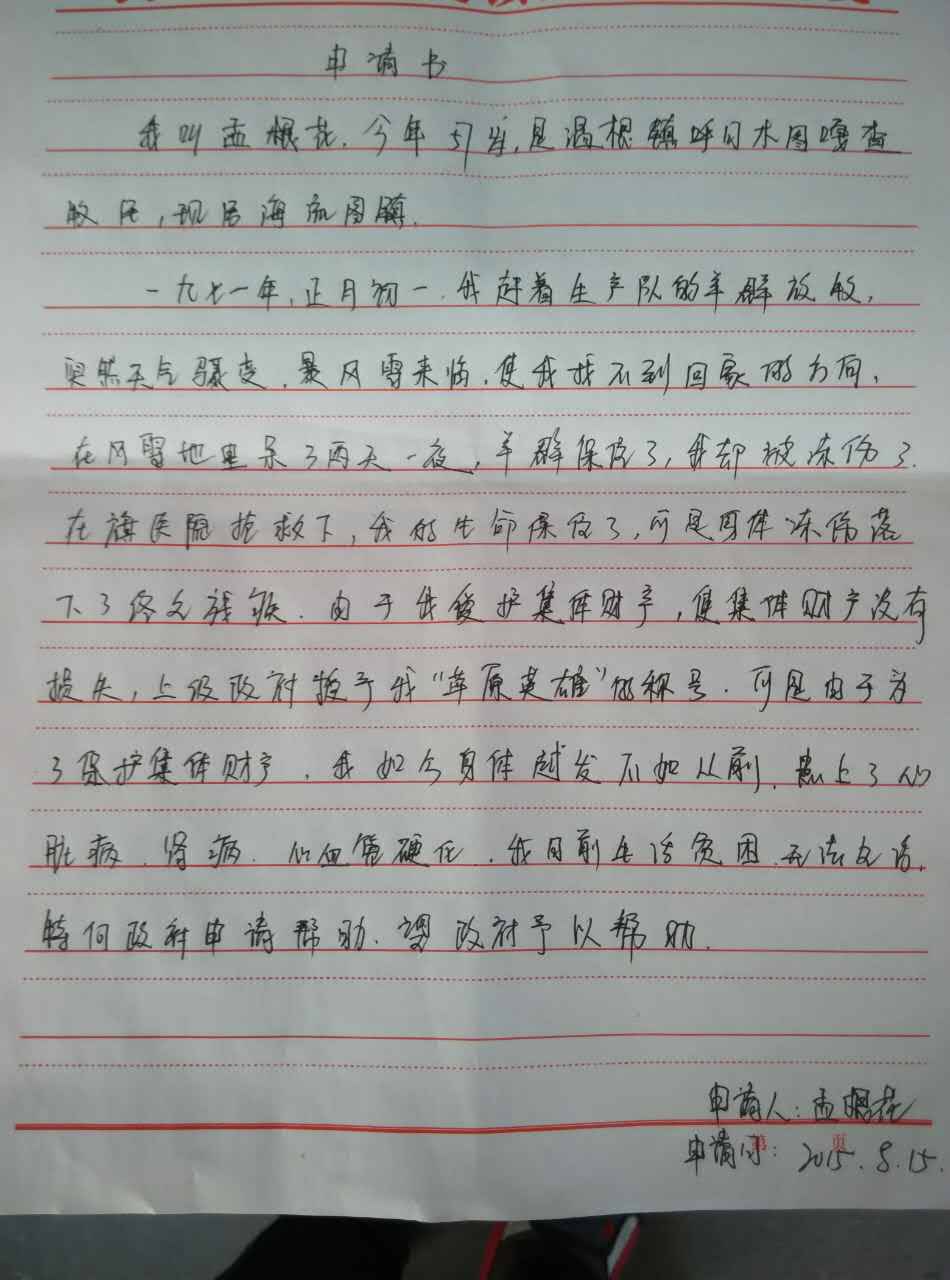 申请书
我叫孟根花.今年57岁,是温根镇呼日木图嘎查
牧民,现居海流图镇.
一九七一年,正月初一.我赶着生产队的羊群放牧,
突然天气骤变,暴风雪来临,使我找不到回家的方向,
在风雪地里呆了两天一夜,羊群保住了,我却被冻伤了.
在旗医院抢救下,我的生命保住了,可是身体冻伤落
下了终身残疾.由于我爱护集体财产,使集体财产没有
损失,上级政府授予我"草原英雄"的称号.可是由于为
了保护集体财产,我如今身体越发不如从前.患上了心
脏病.肾病.心血管硬化,我目前生活贫困.无法生活.
特向政府申请帮助.望政府予以帮助.
申请人:孟根花
申请 : 2015.8.15.
第 页